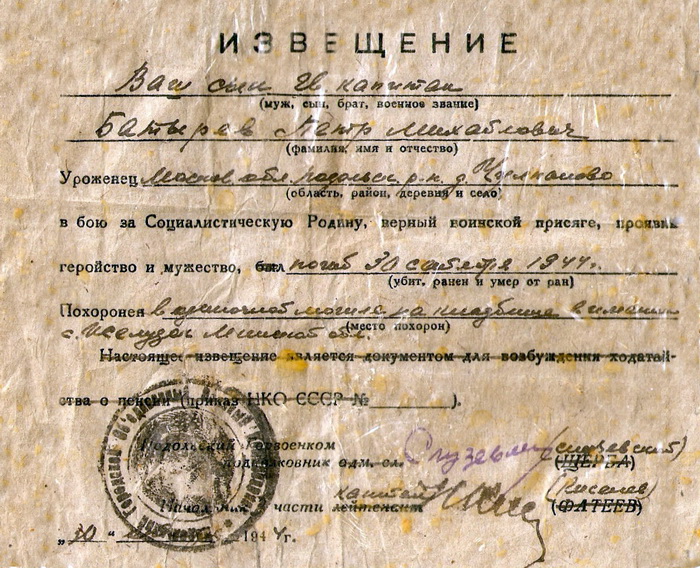 ИЗВЕЩЕНИЕ
Ваш сын гв капитан
(муж, сын, брат, военное звание)
Батырев Петр Михайлович
(фамилия, имя и отчество)
Уроженец Москов обл Подольск р-н д
(область, район, деревня и село)
в бою за Социалистическую Родину, верный воинской присяге, проявив
геройство и мужество, был погиб 30 1944г.
(убит, ранен и умер от ран)
Похоронен в могиле на кладбище в имении
с. Желудок Минской обл.
(место похорон)
Настоящее извещение является документом для возбуждения ходатай-
ства о пенсии (приказ НКО СССР № ).
Подольский Горвоенком
подполковник адм. сл. (ЩЕРБА)
Начальник части капитан лейтенант (Киселев) (ФАТЕЕВ)
„30“ 1944г.